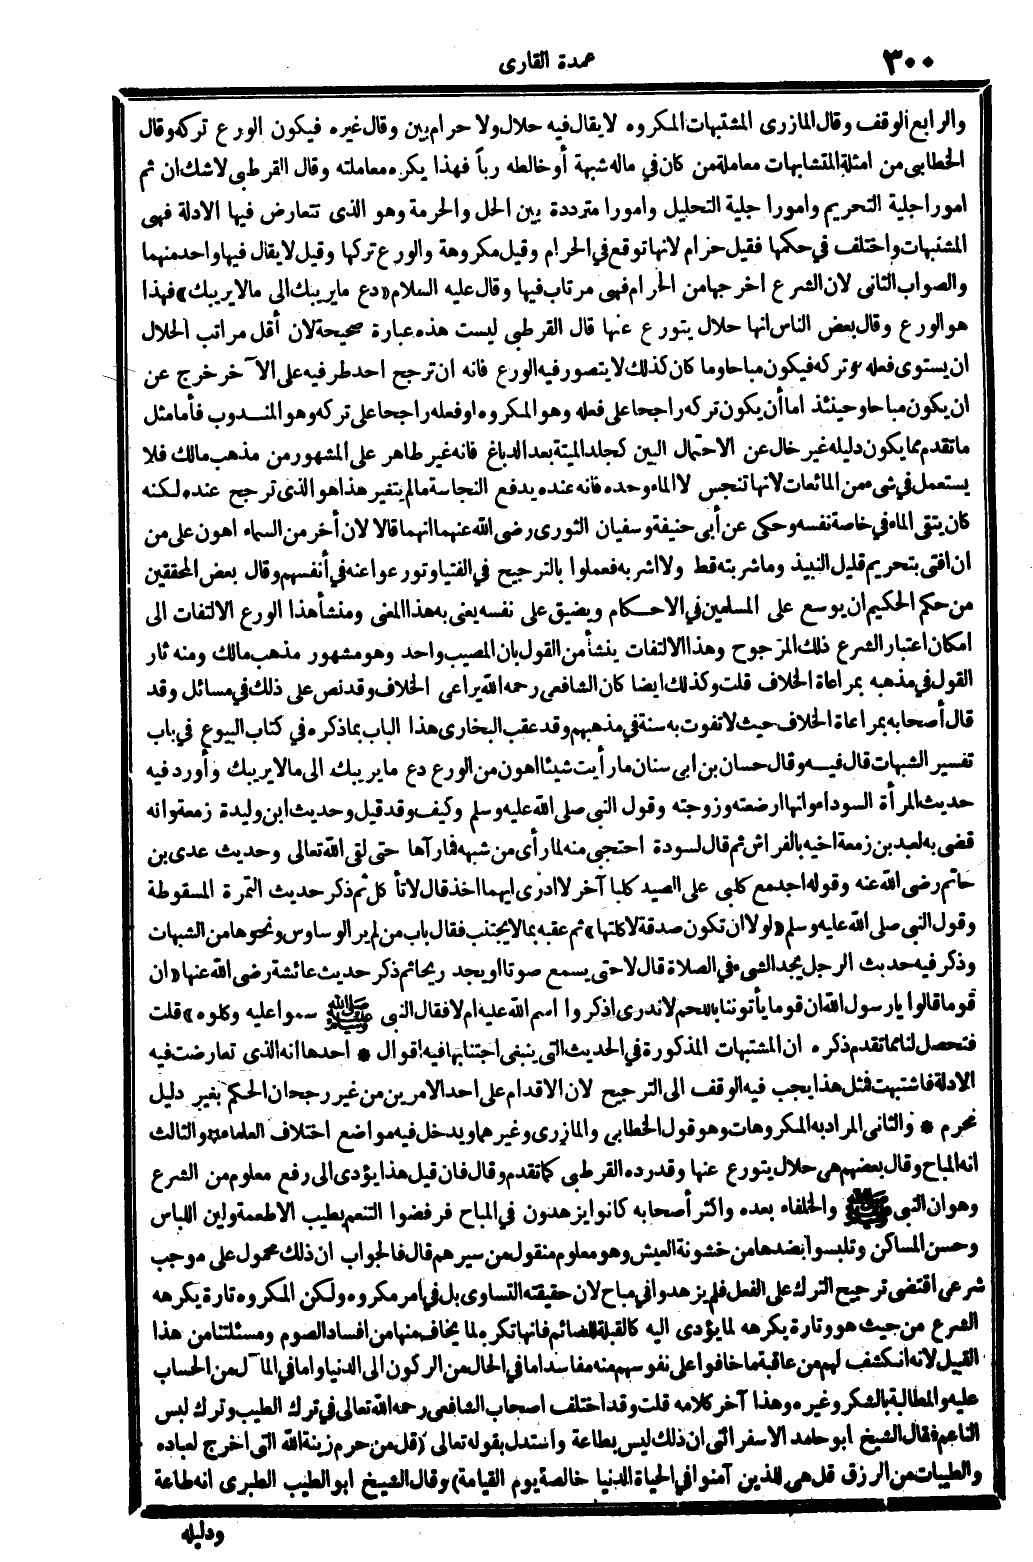 ٣٠٠
عمدة القارى
والرابع الوقف وقال المازرى المشتبهات المكروه لا يقال فيه حلال ولا حرام بين وقال غيره فيكون الورع تركه وقال
الخطابى من امثلة المتشابهات معاملة من كان في ماله شبهة أو خالطه ربا فهذا يكره معاملته وقال القرطبى لاشك ان ثم
امورا جلية التحريم وامورا جلية التحليل وامورا مترددة بين الحل والحرمة وهو الذى تتعارض فيها الادلة فهى
المشتبهات واختلف في حكمها فقيل حرام لانها توقع في الحرام وقيل مكروهة والورع تركها وقيل لا يقال فيها واحد منهما
والصواب الثانى لان الشرع اخرجها من الحرام فهى مرتاب فيها وقال عليه السلام «دع ما يريبك الى مالا يريبك» فهذا
هو الورع وقال بعض الناس انها حلال يتورع عنها قال القرطبى ليست هذه عبارة صحيحة لان أقل مراتب الحلال
ان يستوى فعله وتركه فيكون مباحا وما كان كذلك لا يتصور فيه الورع فانه ان ترجح احد طرفيه على الآخر خرج عن
ان يكون مباحا وحينئذ اما أن يكون تركه راجحا على فعله وهو المكروه او فعله راجحا على تركه وهو المندوب فأما مثل
ما تقدم مما يكون دليله غير خال عن الاحتمال البين كجلد الميتة بعد الدباغ فانه غير طاهر على المشهور من مذهب مالك فلا
يستعمل في شىء من المائعات لانها تنجس لا الماء وحده فانه عنده يدفع النجاسة مالم يتغير هذا هو الذى ترجح عنده لكنه
كان يتقى الماء في خاصة نفسه وحكى عن أبى حنيفة وسفيان الثورى رضى الله عنهما انهما قالا لان أخر من السماء اهون على من
ان افتى بتحريم قليل النبيذ وما شربته قط ولا اشربه فعملوا بالترجيح في الفتيا وتورعوا عنه في أنفسهم وقال بعض المحققين
من حكم الحكيم ان يوسع على المسلمين في الاحكام ويضيق على نفسه يعنى به هذا المعنى ومنشأ هذا الورع الالتفات الى
امكان اعتبار الشرع ذلك المرجوح وهذا الالتفات ينشأ من القول بان المصيب واحد وهو مشهور مذهب مالك ومنه ثار
القول في مذهبه بمراعاة الخلاف قلت وكذلك ايضا كان الشافعى رحمه الله يراعى الخلاف وقد نص على ذلك في مسائل وقد
قال أصحابه بمراعاة الخلاف حيث لا تفوت به سنة في مذهبهم وقد عقب البخارى هذا الباب بما ذكره في كتاب البيوع في باب
تفسير الشبهات قال فيه وقال حسان بن ابى سنان ما رأيت شيئا اهون من الورع دع ما يريبك الى مالا يريبك وأورد فيه
حديث المرأة السوداء وانها ارضعته وزوجته وقول النبى صلى الله عليه وسلم وكيف وقد قيل وحديث ابن وليدة زمعة وانه
قضى به لعبد بن زمعة اخيه بالفراش ثم قال لسودة احتجبى منه لما رأى من شبهه فما رآها حتى لقى الله تعالى وحديث عدى بن
حاتم رضى الله عنه وقوله اجد مع كلبى على الصيد كلبا آخر لا ادرى ايهما اخذ قال لا تأكل ثم ذكر حديث التمرة المسقوطة
وقول النبى صلى الله عليه وسلم «لولا ان تكون صدقة لاكلتها» ثم عقبه بما لا يجتنب فقال باب من لم ير الوساوس ونحوها من الشبهات
وذكر فيه حديث الرجل يجد الشىء في الصلاة قال لا حتى يسمع صوتا او يجد ريحا ثم ذكر حديث عائشة رضى الله عنها «ان
قوما قالوا يارسول الله ان قوما يأتوننا باللحم لا ندرى اذكروا اسم الله عليه ام لا فقال النبى ﷺ سموا عليه وكلوه» قلت
فتحصل لنا مما تقدم ذكره ان المشتبهات المذكورة في الحديث التى ينبغى اجتنابها فيه اقوال * احدها انه الذى تعارضت فيه
الادلة فاشتبهت فمثل هذا يجب فيه الوقف الى الترجيح لان الاقدام على احد الامرين من غير رجحان الحكم بغير دليل
محرم * والثانى المراد به المكروهات وهو قول الخطابى والمازرى وغيرهما ويدخل فيه مواضع اختلاف العلماء * والثالث
انه المباح وقال بعضهم هى حلال يتورع عنها وقد رده القرطبى كما تقدم وقال فان قيل هذا يؤدى الى رفع معلوم من الشرع
وهو ان النبى ﷺ والخلفاء بعده واكثر أصحابه كانوا يزهدون في المباح فرفضوا التنعم بطيب الاطعمة ولين اللباس
وحسن المساكن وتلبسوا بضدها من خشونة العيش وهو معلوم منقول من سيرهم قال فالجواب ان ذلك محمول على موجب
شرعى اقتضى ترجيح الترك على الفعل فلم يزهدوا في مباح لان حقيقته التساوى بل في أمر مكروه ولكن المكروه تارة يكرهه
الشرع من حيث هو وتارة يكرهه لما يؤدى اليه كالقبلة للصائم فانها تكره لما يخاف منها من افساد الصوم ومسئلتنا من هذا
القبيل لانه انكشف لهم من عاقبة ما خافوا على نفوسهم منه مفاسد اما في الحال من الركون الى الدنيا واما في المآل من الحساب
عليه والمطالبة بالشكر وغيره وهذا آخر كلامه قلت وقد اختلف اصحاب الشافعى رحمه الله تعالى في ترك الطيب وترك لبس
الناعم فقال الشيخ ابو حامد الاسفرائنى ان ذلك ليس بطاعة واستدل بقوله تعالى (قل من حرم زينة الله التى اخرج لعباده
والطيبات من الرزق قل هى للذين آمنوا في الحياة الدنيا خالصة يوم القيامة) وقال الشيخ ابو الطيب الطبرى انه طاعة
ودليله